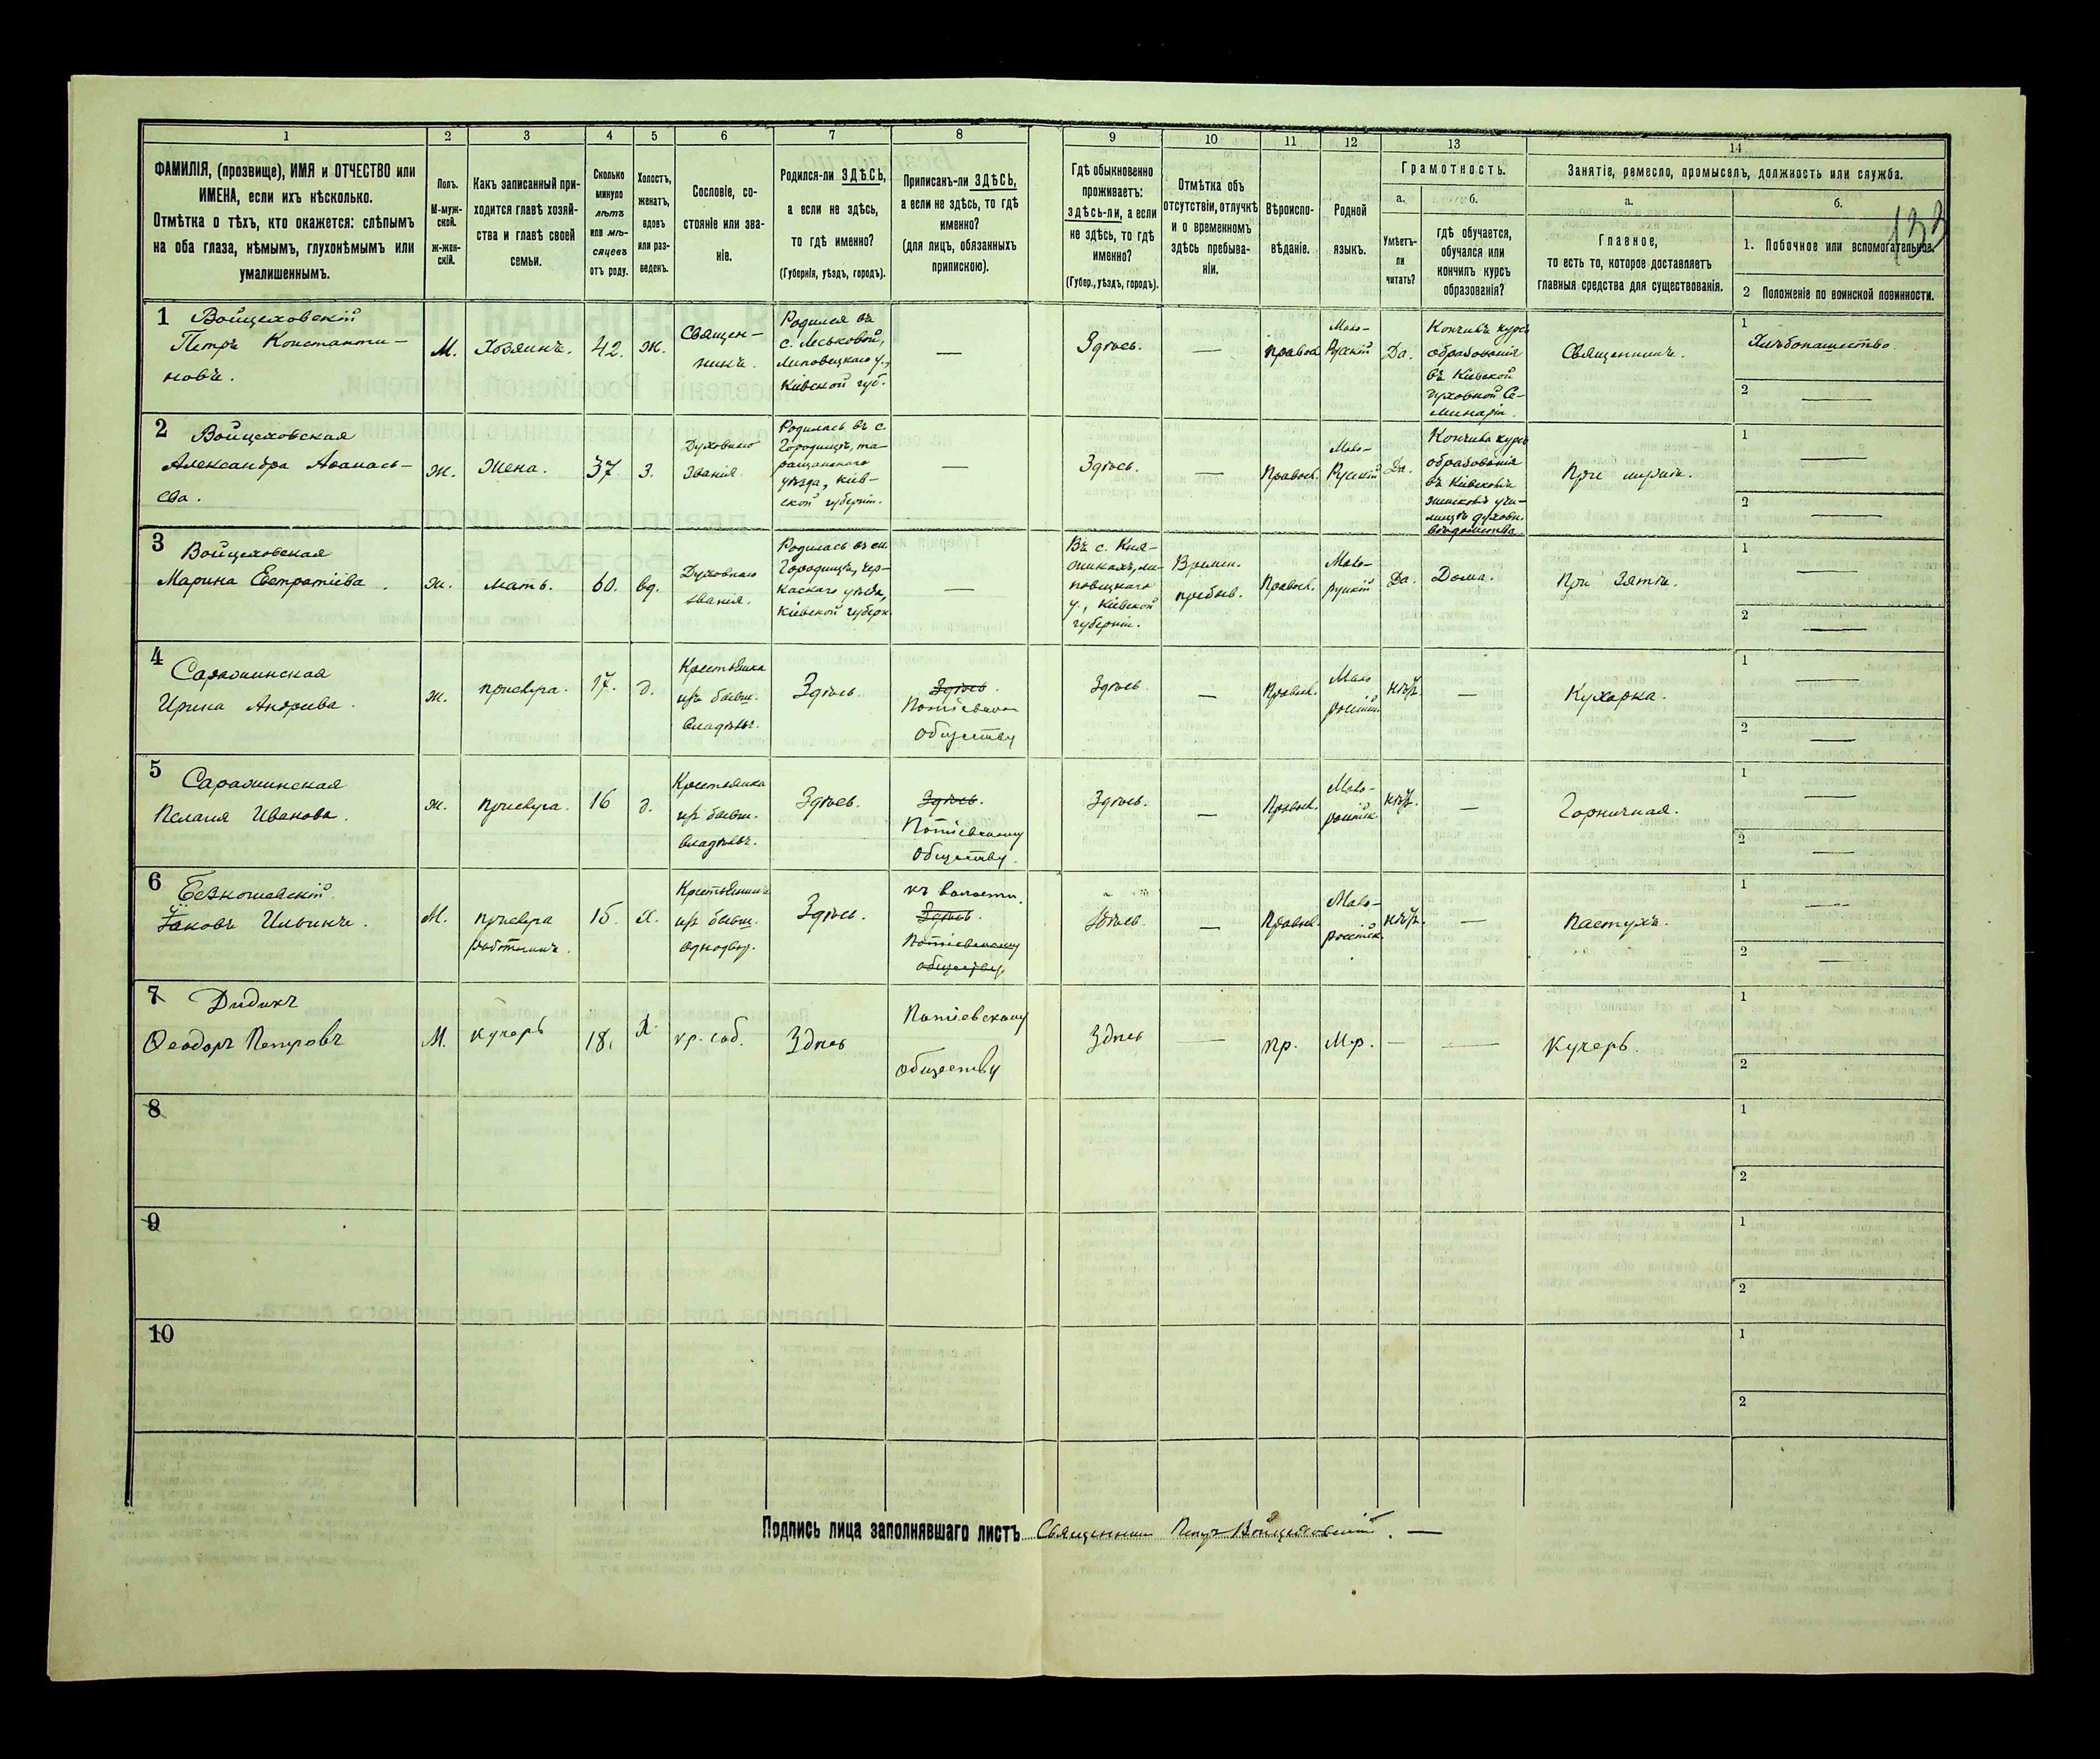 1 2 3 4 5 6 7 8 9 10 11 12 13 14
ФАМИЛІЯ, (прозвище), ИМЯ и ОТЧЕСТВО или
ИМЕНА, если ихъ нѣсколько.
Отмѣтка о тѣхъ, кто окажется: слѣпымъ
на оба глаза, нѣмымъ, глухонѣмымъ или
умалишеннымъ.
Полъ.
М-муж-
ской.
ж-жен-
скій.
Какъ записанный при-
ходится главѣ хозяй-
ства и главѣ своей
семьи.
Сколько
минуло
лѣтъ
или мѣ-
сяцевъ
отъ роду.
Холостъ,
женатъ,
вдовъ
или раз-
веденъ.
Сословіе, со-
стояніе или зва-
ніе.
Родился-ли ЗДѢСЬ,
а если не здѣсь,
то гдѣ именно?
(Губернія, уѣздъ, городъ).
Приписанъ-ли ЗДѢСЬ,
а если не здѣсь, то гдѣ
именно?
(для лицъ, обязанныхъ
припискою).
Гдѣ обыкновенно
проживаетъ:
здѣсь-ли, а если
не здѣсь, то гдѣ
именно?
(Губер., уѣздъ, городъ).
Отмѣтка объ
отсутствіи, отлучкѣ
и о временномъ
здѣсь пребыва-
ніи.
Вѣроиспо-
вѣданіе.
Родной
языкъ.
Грамотность.
а.
Умѣетъ-
ли
читать?
б.
гдѣ обучается,
обучался или
кончилъ курсъ
образованія?
Занятіе, ремесло, промыселъ, должность или служба.
а.
Главное,
то есть то, которое доставляетъ
главныя средства для существованія.
б.
133
1. Побочное или вспомогательное.
2 Положеніе по воинской повинности.
1 Войцеховскій
Петръ Константи-
новъ.
М.
Хозяинъ.
42.
ж.
Священ-
никъ.
Родился въ
с. Леськовой,
Липовецкаго у.,
Кіевской губ.
—
Здѣсь.
—
правосл
Мало-
Русскій
Да.
Кончивъ курсъ
образованія
въ Кіевской
духовной Се-
минаріи.
Священникъ.
1
Хлѣбопашество
2 —
2 Войцеховская
Александра Аѳанась-
ева.
ж.
Жена.
37
з.
Духовнаго
званія
Родилась въ с.
Городищѣ, та-
ращанскаго
уѣзда, Кіев-
ской губерніи.
—
Здѣсь.
—
Правосл.
Мало-
Русскій
Да.
Кончила курсъ
образованія
въ Кіевскомъ
женскомъ учи-
лищѣ духовн.
вѣдомства
При мужѣ.
1 —
2 —
3 Войцеховская
Марина Евстратіева.
ж.
мать.
60.
вд.
Духовнаго
званія.
Родилась въ
Городищѣ, чер-
каскаго уѣзда,
Кіевской губерн.
—
Въ с. Кня-
жикахъ, ли-
повецкаго
у., Кіевской
губерніи.
Времен.
пребыв.
Правосл.
Мало-
русскій
Да.
Дома.
При зятѣ.
1 —
2 —
4 Саражинская
Ирина Андреева.
ж.
прислуга.
17.
д.
Крестьянка
изъ бывш.
владѣльч.
Здѣсь.
Здѣсь.
Потіевскому
обществу
Здѣсь.
—
Правосл.
Мало
россійск.
нѣтъ.
—
Кухарка.
1 —
2 —
5 Саражинская
Пелагія Иванова.
ж.
прислуга.
16
д.
Крестьянка
изъ бывш.
владѣльч.
Здѣсь.
Здѣсь.
Потіевскому
обществу.
Здѣсь.
—
Правосл.
Мало-
россійск.
нѣтъ.
—
Горничная.
1 —
2 —
6 Безкошевскій
Яковъ Ильинъ.
М.
прислуга
работникъ.
15.
х.
Крестьянинъ
изъ бывш.
однодвор.
Здѣсь.
къ волости.
Здѣсь.
Потіевскому
обществу.
Здѣсь.
—
Правосл.
Мало-
россійск.
нѣтъ.
—
Пастухъ.
1 —
2 —
7 Дидикъ
Ѳеодоръ Петровъ
М.
кучеръ
18.
х.
кр. соб.
Здѣсь
Потіевскому
обществу
Здѣсь
—
пр.
М.р.
—
—
Кучеръ.
1
2
8
1
2
9
1
2
10
1
2
Подпись лица заполнявшаго листъ Священникъ Петръ Войцеховскій. —